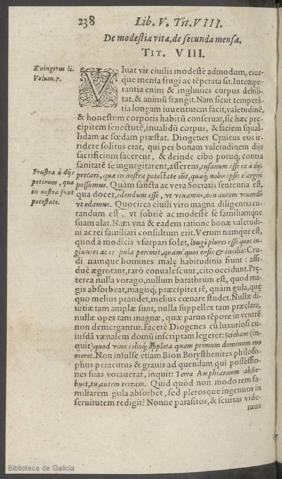 238 Lib. V. Tit. VIII.
De modestia vitæ, de secunda mensa.
TIT. VIII.
Zuingerus li.
Volum. 7.
Viuat vir ciuilis modestè admodum, eiut-
que mensa frugi ac tēperata sit. Intempe-
rantia enim & ingluuies corpus debili-
tat, & animũ frangit. Nam sicut temperã-
tia longam iuuentutem facit, valetudinẽ,
& honestum corporis habitũ conseruat, sic hæc præ-
cipitem senectutẽ, inualidũ corpus, & faciem squal-
lidam ac fœdam præstat. Diogenes Cynicus eos ir-
ridere solitus erat, qui per bonam valetudinem dijs
sacrificium facerent, & deinde cibo potuq; contra
sanitatē se ingurgitarent, asserens, insanum esse ea à dijs
Frustra à dijs
petimus, quæ
in nostra sunt
potestate.
precari, quæ in nostra potestate essēt, quæq; nobis ipsis elargiri
possumus. Quàm sancta ac vera Socratis sententia est,
qua docet, edendum esse, vt viuamus, non autem viuendũ
vt edamus. Quocirca ciuili viro magna diligentia cu-
randum est, vt sobriè ac modestè se familiamque
suam alat. Nam vna & eadem ratione bonæ valetudi-
ni ac rei familiari consultum erit. Verum namque est,
quod à modicis vsurpari solet, longè plures esse quos in-
gluuies ac crapula peremit, quàm quos ensis & lancea: Cru-
di namque homines malè habitudinis fiunt: assi-
duè ægrotant, rarò conualescunt, citò occidunt. Præ-
terea nulla vorago, nullum barathrum est, quod ma-
gis absorbeat, magisq; præcipitet rē, quàm gula, quæ-
quo melius prandet, melius cœnare studet. Nullæ di-
uitiæ tam amplæ sunt, nulla supellex tam præclara,
nullæ opes tam magnæ, quæ paruo tēpore in ventrē
non demergantur. Facetè Diogenes cũ luxuriosi cu-
iusdã vænalem domũ inscriptam legeret: Sciebam (in-
quit) quod vino cibisq; repleta quam primum dominum euo-
meret. Non insulsè etiam Bion Borysthenites philoso-
phus peracutus & grauis ad quendam qui possessio-
nes suas vorauerat, inquit: Terra Amphiaraum absor-
buit, tu, autem terram. Quid quòd non modo rem fa-
miliarem gula absorbet, sed plerosque ingenuos in
seruitutem redigit? Nonne parasitos, & scurras vide-
mus
Biblioteca de Galicia